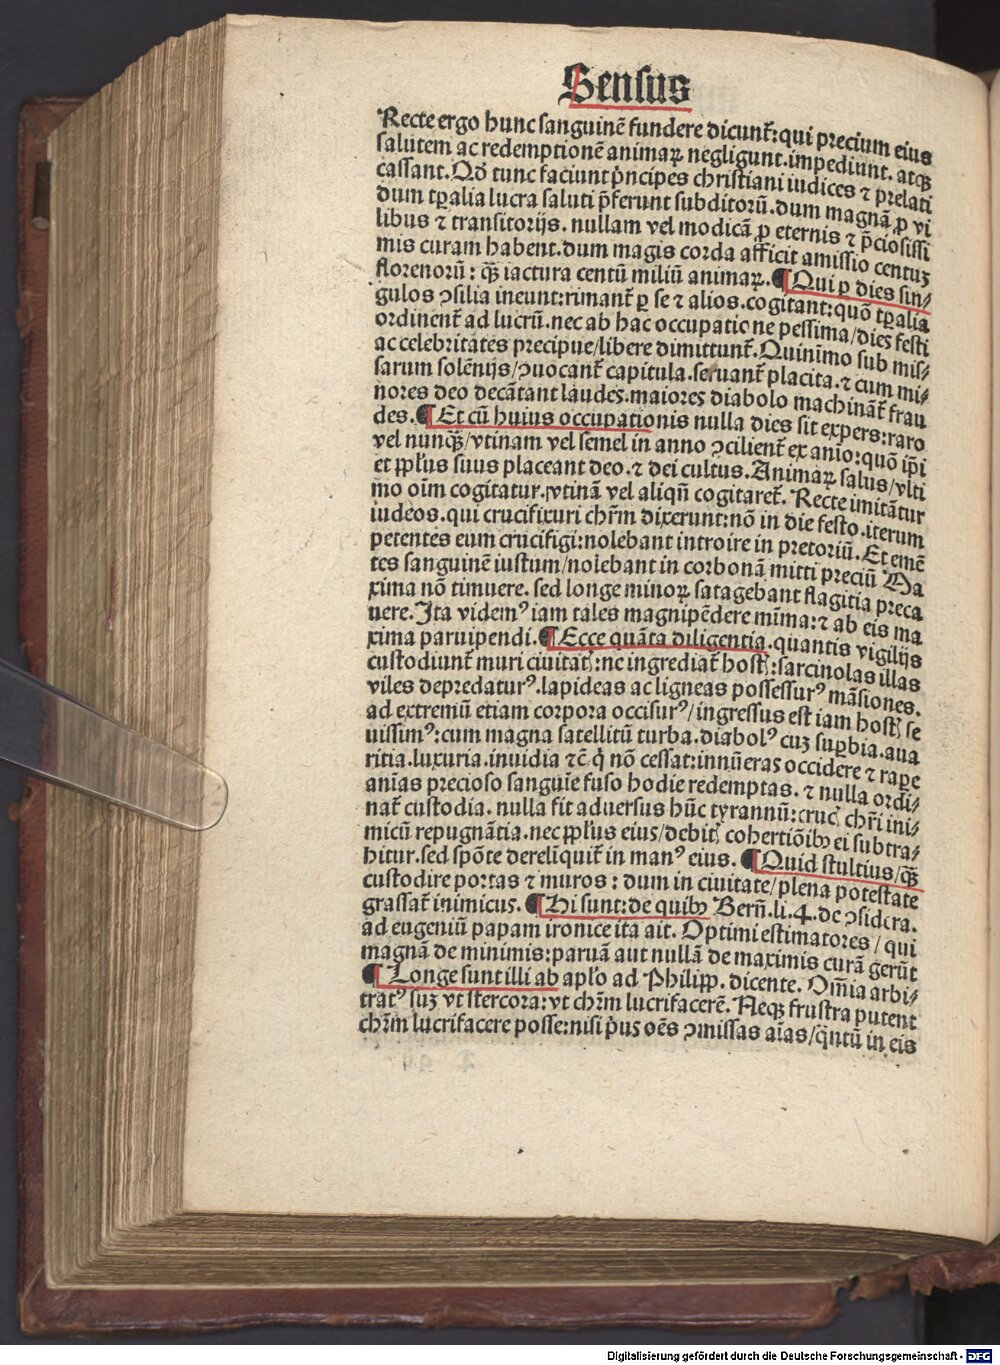 Sensus
Recte ergo hunc sanguinē fundere dicunt̄: qui precium eius
salutem ac redemptionē animaꝝ negligunt. impediunt. atqꝫ
cassant. Qd̄ tunc faciunt p̄ncipes christiani iudices ⁊ prelati
dum tꝑalia lucra saluti p̄ferunt subditorū. dum magnā ꝓ vi
libus ⁊ transitorijs. nullam vel modicā ꝓ eternis ⁊ p̄ciosissi
mis curam habent. dum magis corda afficit amissio centuꝫ
florenorū: qꝫ̄ iactura centū miliū animaꝝ. ¶ Qui ꝑ dies sin⸗
gulos ↄsilia ineunt: rimant̄ ꝑ se ⁊ alios. cogitant: quō tꝑalia
ordinent̄ ad lucrū. nec ab hac occupatione pessima/dies festi
ac celebritates precipue/libere dimittunt̄. Quinimo sub mis⸗
sarum solēnijs/ↄuocant̄ capitula. seruant̄ placita. ⁊ cum mi⸗
nores deo decātant laudes. maiores diabolo machināt̄ frau
des. ¶ Et cū huius occupationis nulla dies sit expers: raro
vel nunqꝫ̄/vtinam vel semel in anno ↄcilient̄ ex aīo: quō ip̄i
et pp̄lus suus placeant deo. ⁊ dei cultus. Animaꝝ salus/vlti
mo oīm cogitatur. vtinā vel aliqn̄ cogitaret̄. Recte imitātur
iudeos. qui crucifixuri chr̄m dixerunt: nō in die festo. iterum
petentes eum crucifigi: nolebant introire in pretoriū. Et emē
tes sanguinē iustum/nolebant in corbonā mitti preciū Ma
xima nō timuere. sed longe minoꝝ satagebant flagitia preca
uere. Ita videmꝰ iam tales magnipēdere mīma: ⁊ ab eis ma
xima paruipendi. ¶ Ecce quāta diligentia. quantis vigilijs
custodiunt̄ muri ciuitatꝭ: ne ingrediat̄ hostꝭ: sarcinolas illas
viles depredaturꝰ. lapideas ac ligneas possessurꝰ māsiones.
ad extremū etiam corpora occisurꝰ/ingressus est iam hostꝭ se
uissimꝰ: cum magna satellitū turba. diabolꝰ cuꝫ suꝑbia. aua
ritia. luxuria. inuidia ⁊c̄ q̇ nō cessat: innūeras occidere ⁊ rape
anīas precioso sanguīe fuso hodie redemptas. ⁊ nulla ordi⸗
nat̄ custodia. nulla fit aduersus hūc tyrannū: crucꝭ chr̄i ini⸗
micū repugnātia. nec pp̄lus eius/debitꝭ cohertiōibꝫ ei subtra⸗
hitur. sed spōte derelīquit̄ in manꝰ eius. ¶ Quid stultius/qꝫ̄
custodire portas ⁊ muros: dum in ciuitate/plena potestate
grassat̄ inimicus. ¶ Hi sunt: de quibꝫ Bern̄. li. 4. de ↄsidera.
ad eugeniū papam ironice ita ait. Optimi estimatores/qui
magnā de minimis: paruā aut nullā de maximis curā gerūt
¶ Longe sunt illi ab apl̄o ad Philipp. dicente. Om̄ia arbi⸗
tratꝰ suꝫ vt stercora: vt chr̄m lucrifacerē. Neqꝫ frustra putent
chr̄m lucrifacere posse: nisi p̄us oēs ↄmissas aīas/q̄ntū in eis
Digitalisierung gefördert durch die Deutsche Forschungsgemeinschaft - DFG